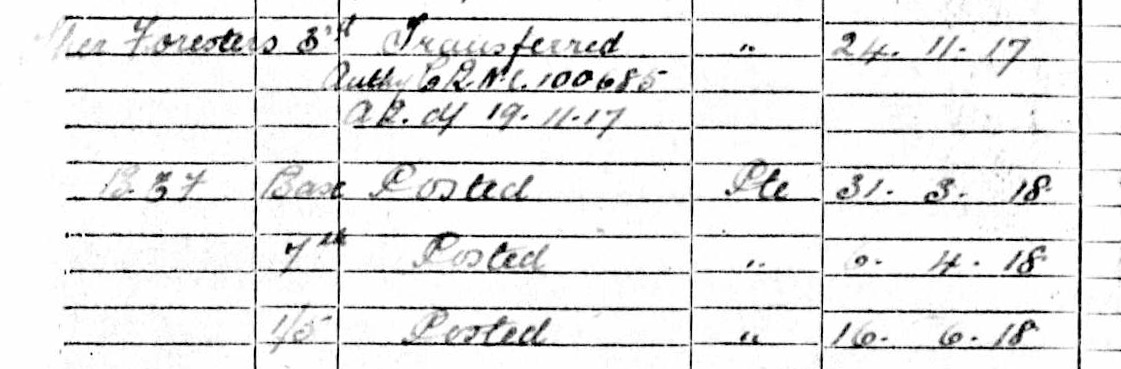 Foresters 3rd Transferred " 24. 11. 17
Authy C.R. No. 100685
A.R. of 19.11.17
B.E.F Base Posted Pte 31. 3. 18
7th Posted " 6. 4. 18
1/5 Posted " 16. 6. 18